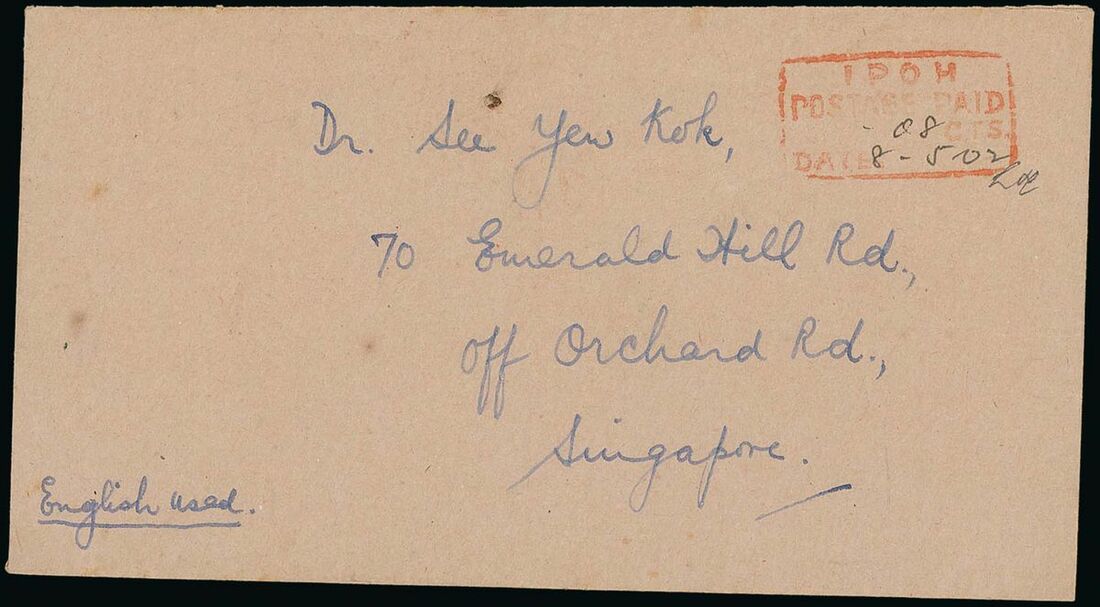 IPOH
POSTAGE PAID
- 08 CTS.
DATE 8-5-02
Dr. See Yew Kok,
70 Emerald Hill Rd.,
off Orchard Rd.,
Singapore.
English used.